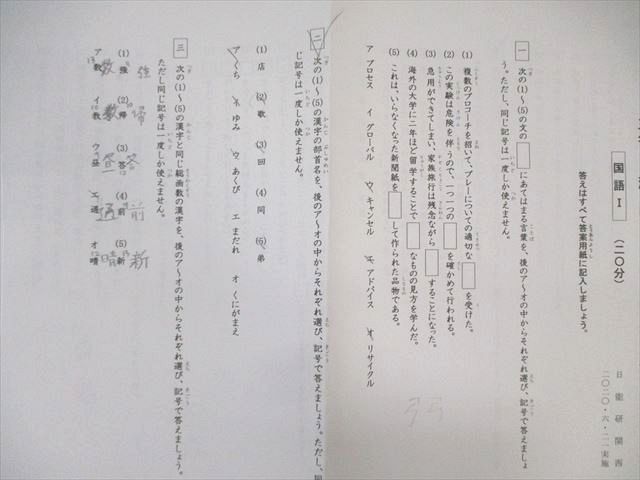 国語Ⅰ (二〇分)
日能研関西
二〇二〇・六・二一実施
答えはすべて答案用紙に記入しましょう。
一 次の(1)~(5)の文の□にあてはまる言葉を、後のア~オの中からそれぞれ選び、記号で答えましょ
う。ただし、同じ記号は一度しか使えません。
(1) 複数のプロコーチを招いて、プレーについての適切な□を受けた。
(2) この実験は危険を伴うので、一つ一つの□を確かめて行われる。
(3) 急用ができてしまい、家族旅行は残念ながら□することになった。
(4) 海外の大学に二年ほど留学することで□なものの見方を学んだ。
(5) これは、いらなくなった新聞紙を□して作られた品物である。
ア プロセス イ グローバル ウ キャンセル エ アドバイス オ リサイクル
二 次の(1)~(5)の漢字の部首名を、後のア~オの中からそれぞれ選び、記号で答えましょう。ただし、同
じ記号は一度しか使えません。
(1) 店 (2) 歌 (3) 回 (4) 同 (5) 弟
ア くち イ ゆみ ウ あくび エ まだれ オ くにがまえ
三 次の(1)~(5)の漢字と同じ総画数の漢字を、後のア~オの中からそれぞれ選び、記号で答えましょう。
ただし同じ記号は一度しか使えません。
(1) 強 強 (2) 帰 帰 (3) 答 答 (4) 前 前 (5) 新 新
ア 教 イ 数 ウ 昼 エ 通 オ 晴